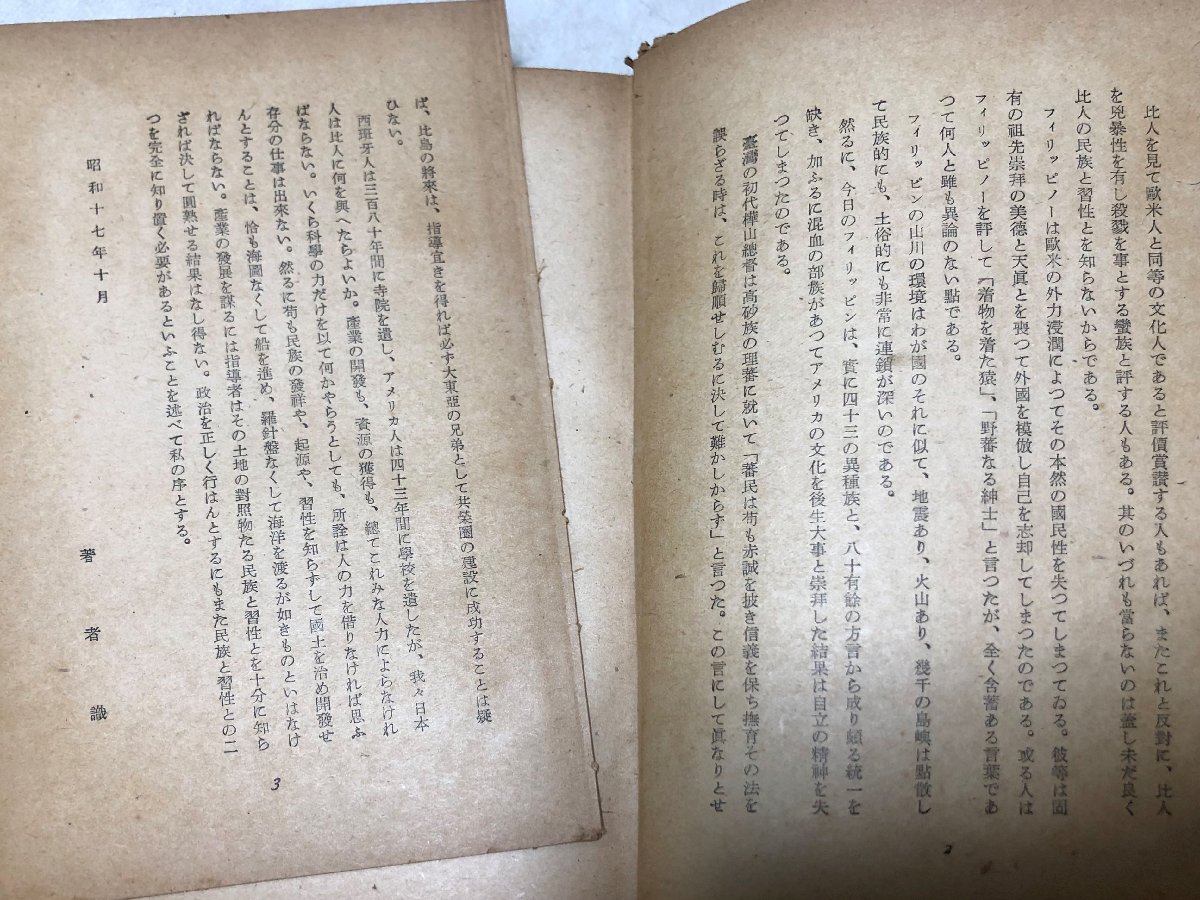 比人を見て歐米人と同等の文化人であると評價賞讃する人もあれば、またこれと反對に、比人
を兇暴性を有し殺戮を事とする蠻族と評する人もある。其のいづれも當らないのは蓋し未だ良く
比人の民族と習性とを知らないからである。
フィリッピノーは歐米の外力浸潤によつてその本然の國民性を失つてしまつてゐる。彼等は固
有の祖先崇拜の美德と天眞とを喪つて外國を模倣し自己を志却してしまつたのである。或る人は
フィリッピノーを評して「着物を着た猿」、「野蕃なる紳士」と言つたが、全く含蓄ある言葉であ
つて何人と雖も異論のない點である。
フィリッピンの山川の環境はわが國のそれに似て、地震あり、火山あり、幾千の島嶼は點散し
て民族的にも、土俗的にも非常に連鎖が深いのである。
然るに、今日のフィリッピンは、實に四十三の異種族と、八十有餘の方言から成り頗る統一を
缺き、加ふるに混血の部族があつてアメリカの文化を後生大事と崇拜した結果は自立の精神を失
つてしまつたのである。
臺灣の初代樺山總督は高砂族の理蕃に就いて「蕃民は苟も赤誠を披き信義を保ち撫育その法を
誤らざる時は、これを歸順せしむるに決して難かしからず」と言つた。この言にして眞なりとせ
2
ば、比島の將來は、指導宜きを得れば必ず大東亞の兄弟として共榮圈の建設に成功することは疑
ひない。
西班牙人は三百八十年間に寺院を遺し、アメリカ人は四十三年間に學校を遺したが、我々日本
人は比人に何を與へたらよいか。產業の開發も、資源の獲得も、總てこれみな人力によらなけれ
ばならない。いくら科學の力だけを以て何かやらうとしても、所詮は人の力を借りなければ思ふ
存分の仕事は出來ない。然るに苟も民族の發祥や、起源や、習性を知らずして國土を治め開發せ
んとすることは、恰も海圖なくして船を進め、羅針盤なくして海洋を渡るが如きものといはなけ
ればならない。產業の發展を謀るには指導者はその土地の對照物たる民族と習性とを十分に知ら
ざれば決して圓熟せる結果はなし得ない。政治を正しく行はんとするにもまた民族と習性との二
つを完全に知り置く必要があるといふことを述べて私の序とする。
昭和十七年十月
著者識
3